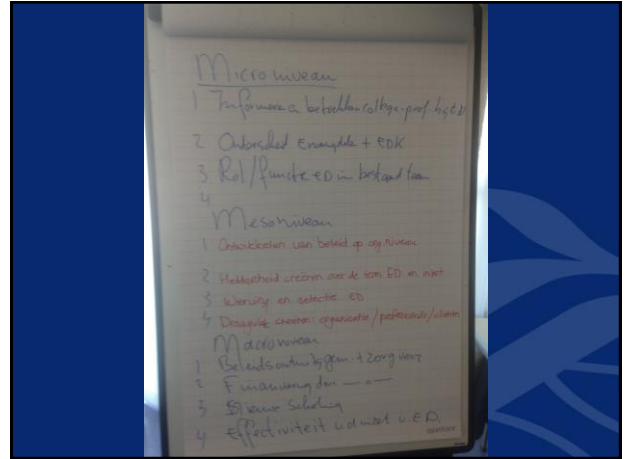 Microniveau
1 Informeren & betrekken collega-prof. bij ED
2 Onderscheid + EDK
3 Rol/functie ED in bestaand team
4
Mesoniveau
1 Ontwikkelen van beleid op org. niveau
2 Helderheid creëren over de term ED en inzet
3 Werving en selectie ED
4 Draagvlak creëren: organisatie/professionals/cliënten
Macroniveau
1 Beleidsontw. gem. + zorgverz
2 Financiering door — " —
3 Nieuwe Scholing
4 Effectiviteit v.d. inzet v. E.D.